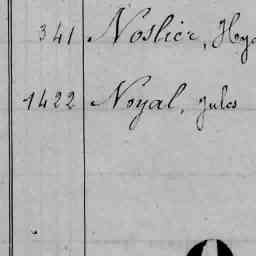 341 Noslier, Hya
1422 Noyal, Jules